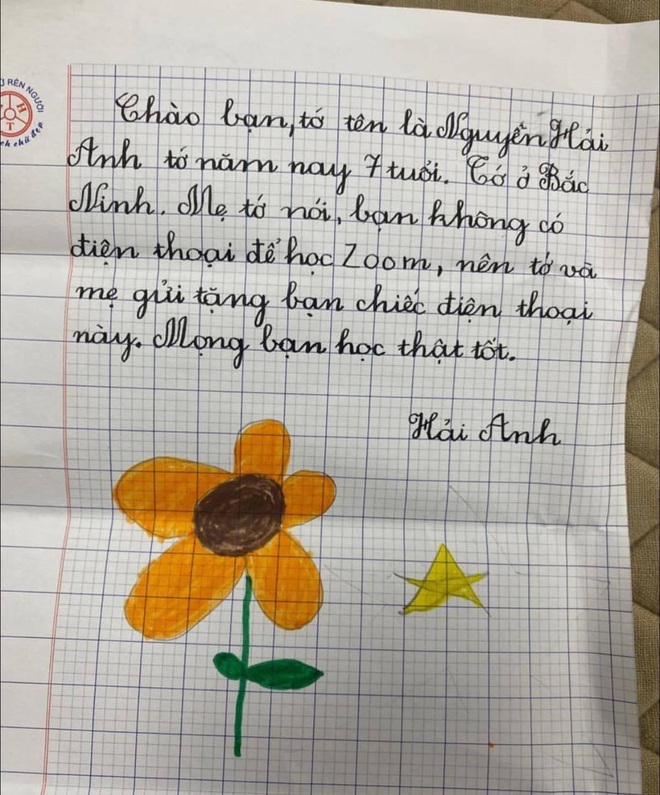 RÈN NGƯỜI
H
T
ch chữ đẹp
Chào bạn, tớ tên là Nguyễn Hải
Anh tớ năm nay 7 tuổi. Tớ ở Bắc
Ninh. Mẹ tớ nói, bạn không có
điện thoại để học Zoom, nên tớ và
mẹ gửi tặng bạn chiếc điện thoại
này. Mong bạn học thật tốt.
Hải Anh